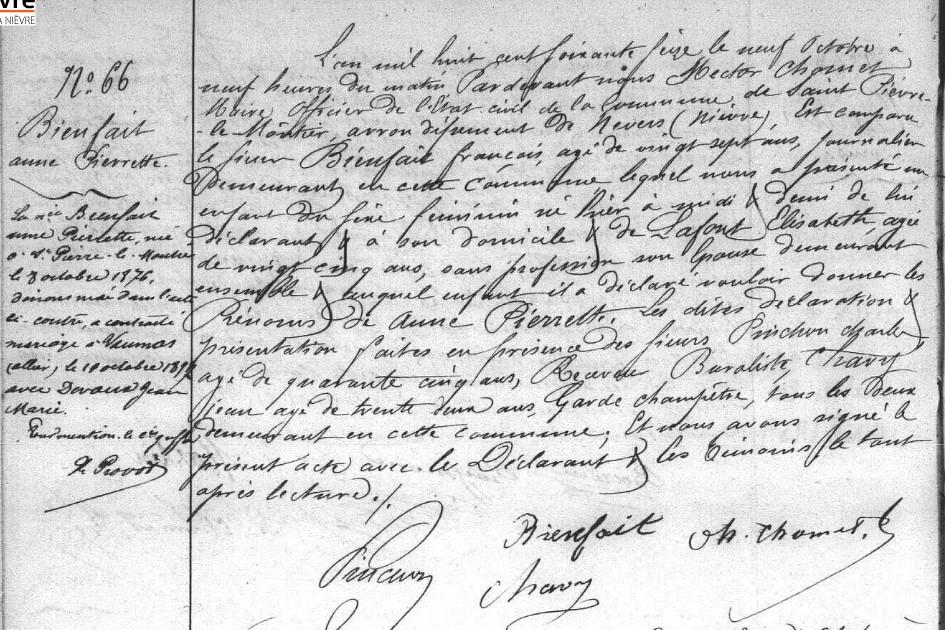 vre
A NIÈVRE
N.º 66
Bienfait
anne Pierrette.
La née Bienfait
anne Pierrette, née
à St Pierre-le-Moutier
le 8 octobre 1876,
dénommée dans l'acte
ci-contre, a contracté
mariage à
(allier) le 10 octobre
avec Jean
Marie.
Pour mention. le
L'an mil huit cent soixante seize le neuf Octobre à
neuf heures du matin Pardevant nous Hector Chomet
Maire, Officier de l'Etat civil de la Commune de Saint Pierre-
-le-Moûtier, arrondissement de Nevers (Nièvre), Est comparu
le sieur Bienfait françois, agé de vingt sept ans, Journalier
Demeurant en cette commune lequel nous a présenté un
enfant du sexe féminin né hier à midi & demi de lui
déclarant & à son domicile & de Lafont Elisabeth, agée
de vingt cinq ans, sans profession son Epouse demeurant
ensemble & auquel enfant il a déclaré vouloir donner les
Prénoms de Anne Pierrette. Les dites déclaration &
présentation faites en présence des sieurs Charles
agé de quarante cinq ans, Receveur Buraliste, Chavy
jean agé de trente deux ans, Garde champêtre, tous les Deux
demeurant en cette commune; Et nous avons signé le
présent acte avec le Déclarant & les témoins le tout
après lecture./.
Bienfait Ch. Chomet
Chavy